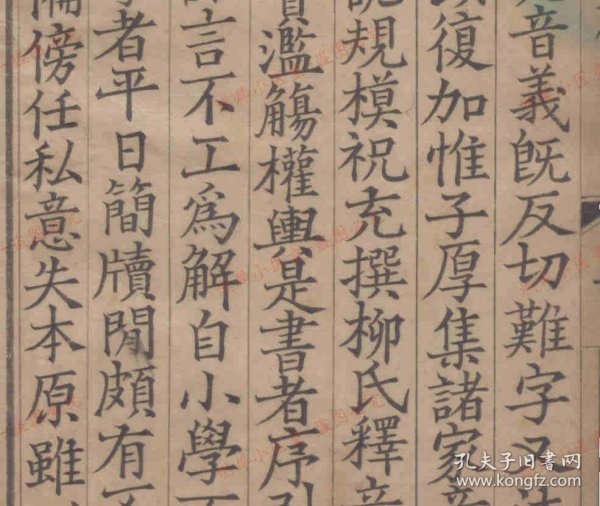 音義既反切難字
復加惟子厚集諸家音
規模祝充撰柳氏釋音
濫觴權輿是書者序引
言不工為解自小學
者平日簡牘閒頗有
傍任私意失本原雖
孔夫子旧书网
www.kongfz.com